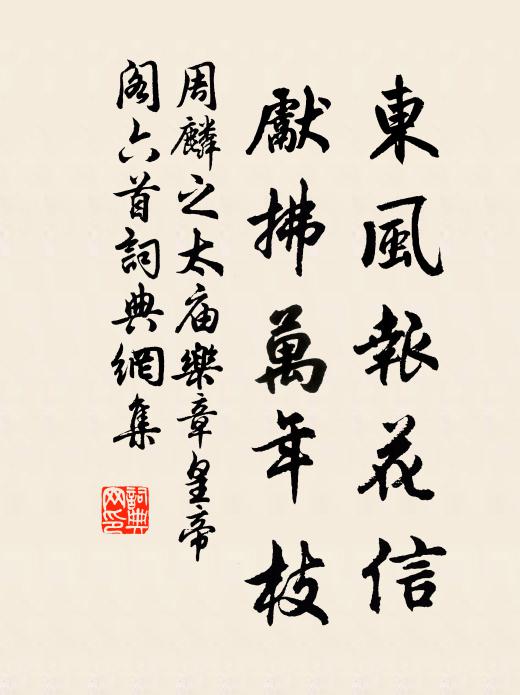 東風報花信
獻拂萬年枝
周麟之太庙樂章皇帝
阁六首詞典網集
詞典
网印